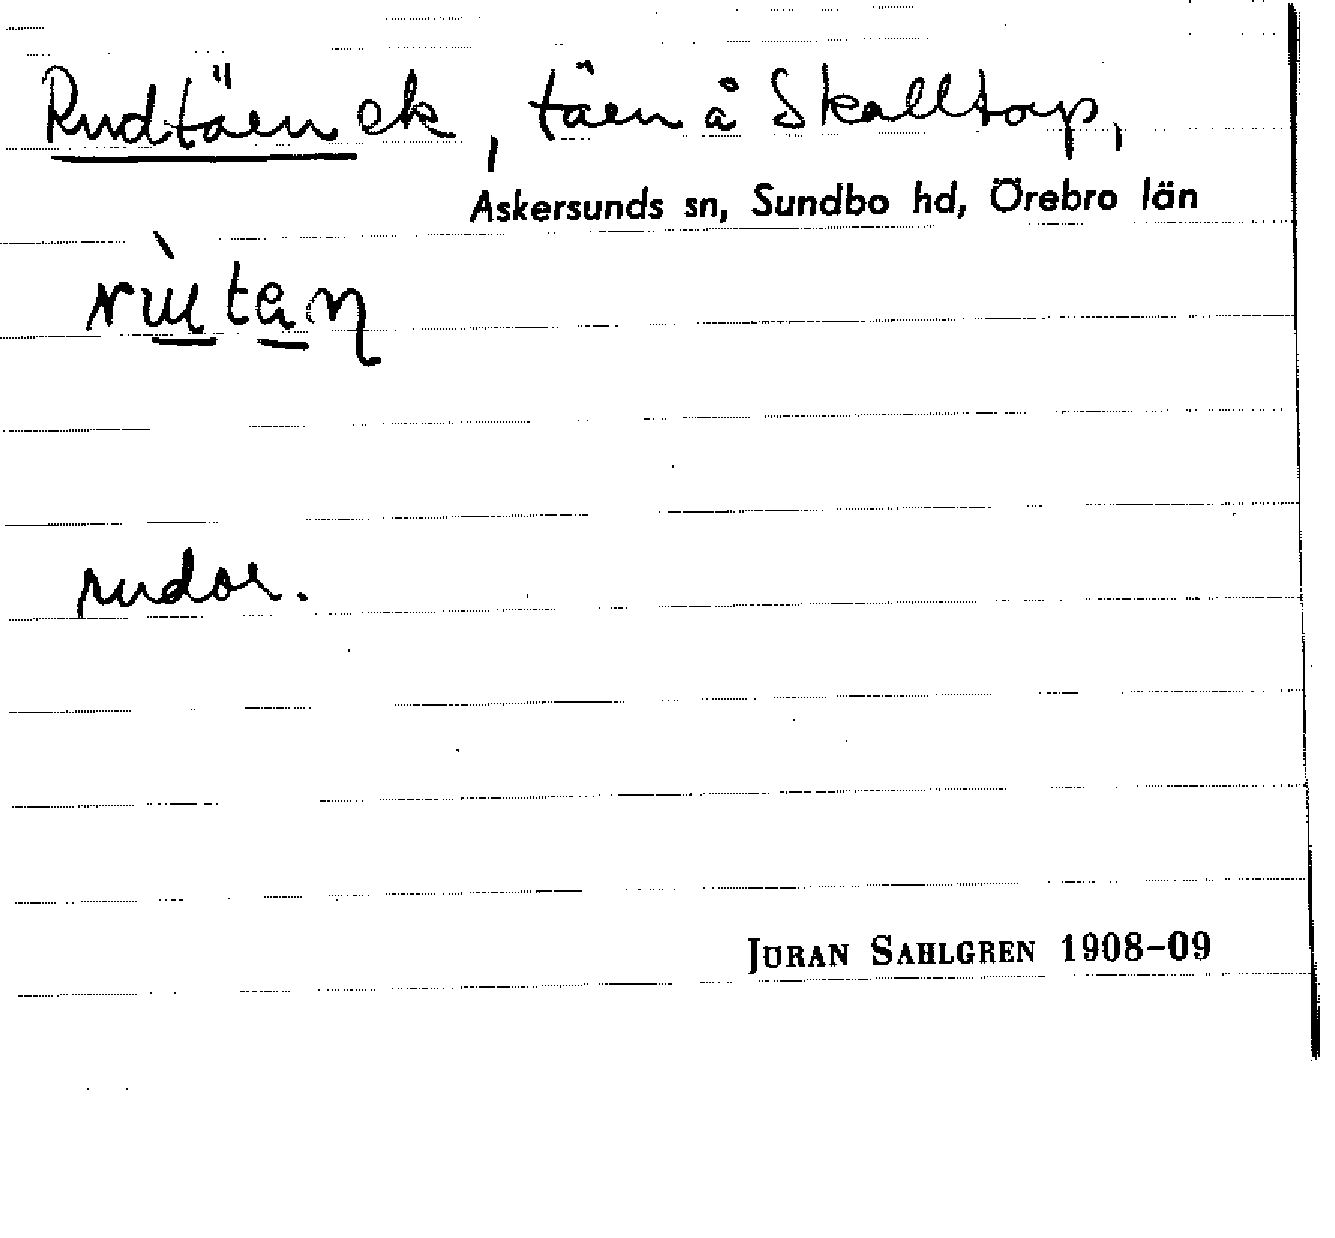 Rudtäen ek, täen å Skalltorp,
Askersunds sn, Sundbo hd, Örebro län
rudor.
JÖRAN SAHLGREN 1908-09